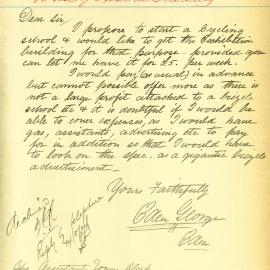 Dear Sir,
I propose to start a Cycling
school & would like to get the Exhibition
building for that purpose – provided you
can let me have it for £5. per week.
I would pay (as usual) in advance
but cannot possible offer more as there is
not a large profit attached to a bicycle
school etc & it is doubtful if I would be
able to cover expenses, as I would have
gas, assistants, advertising etc to pay
for in addition so that I would have
to look on the spec. as a gigantic bicycle
advertisement.
Yours Faithfully
George
Reply by telephone
Assistant Town Clerk